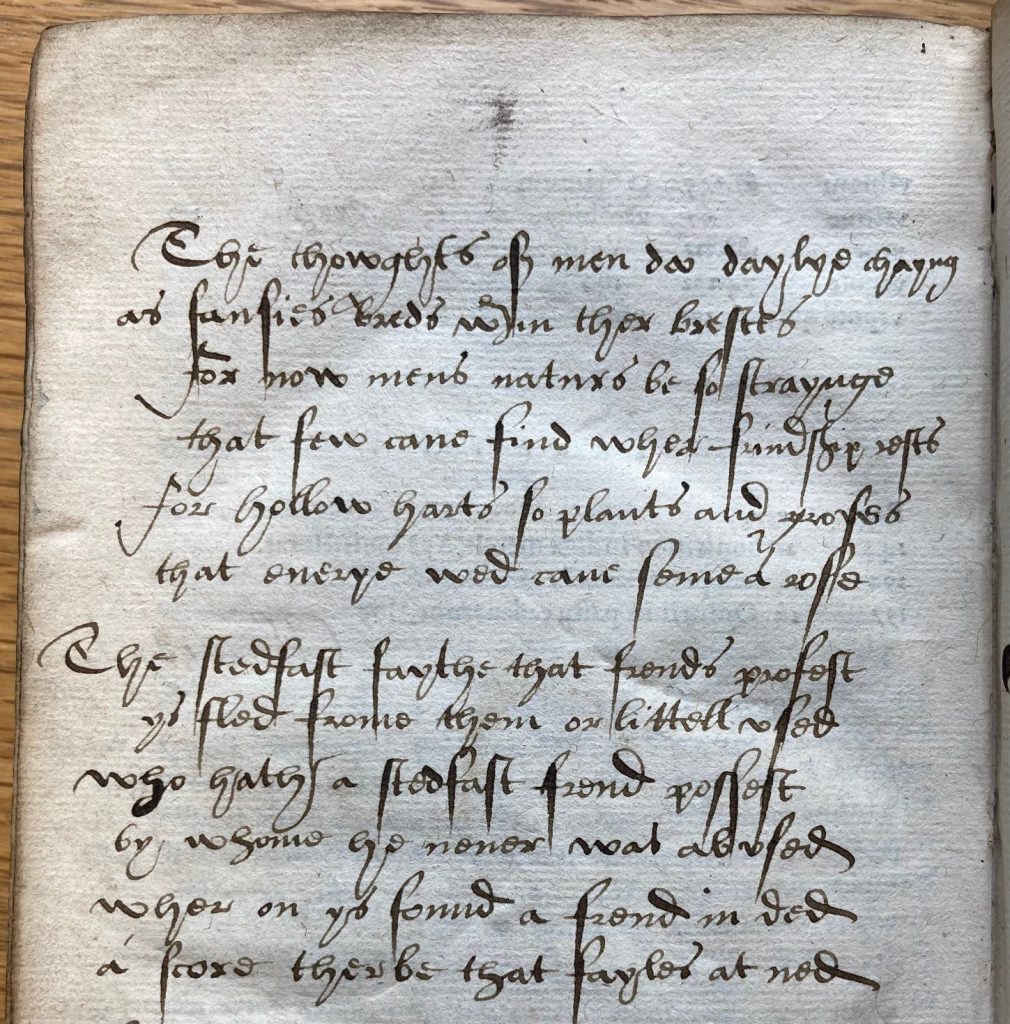 The thowghts off men do daylye chayng
as fansies breds wthin ther brestes
for now mens naturs be so straynge
that few cane find wher frindship rests
for hollow harts so plants and groses
that euerye wed cane seme a rosse
The stedfast faythe that frends profest
ys fled frome them or littell vsed
who hath a stedfast frend possest
by whome he neuer was abvsed
wher on ys found a frend in ded
a score ther be that fayles at ned